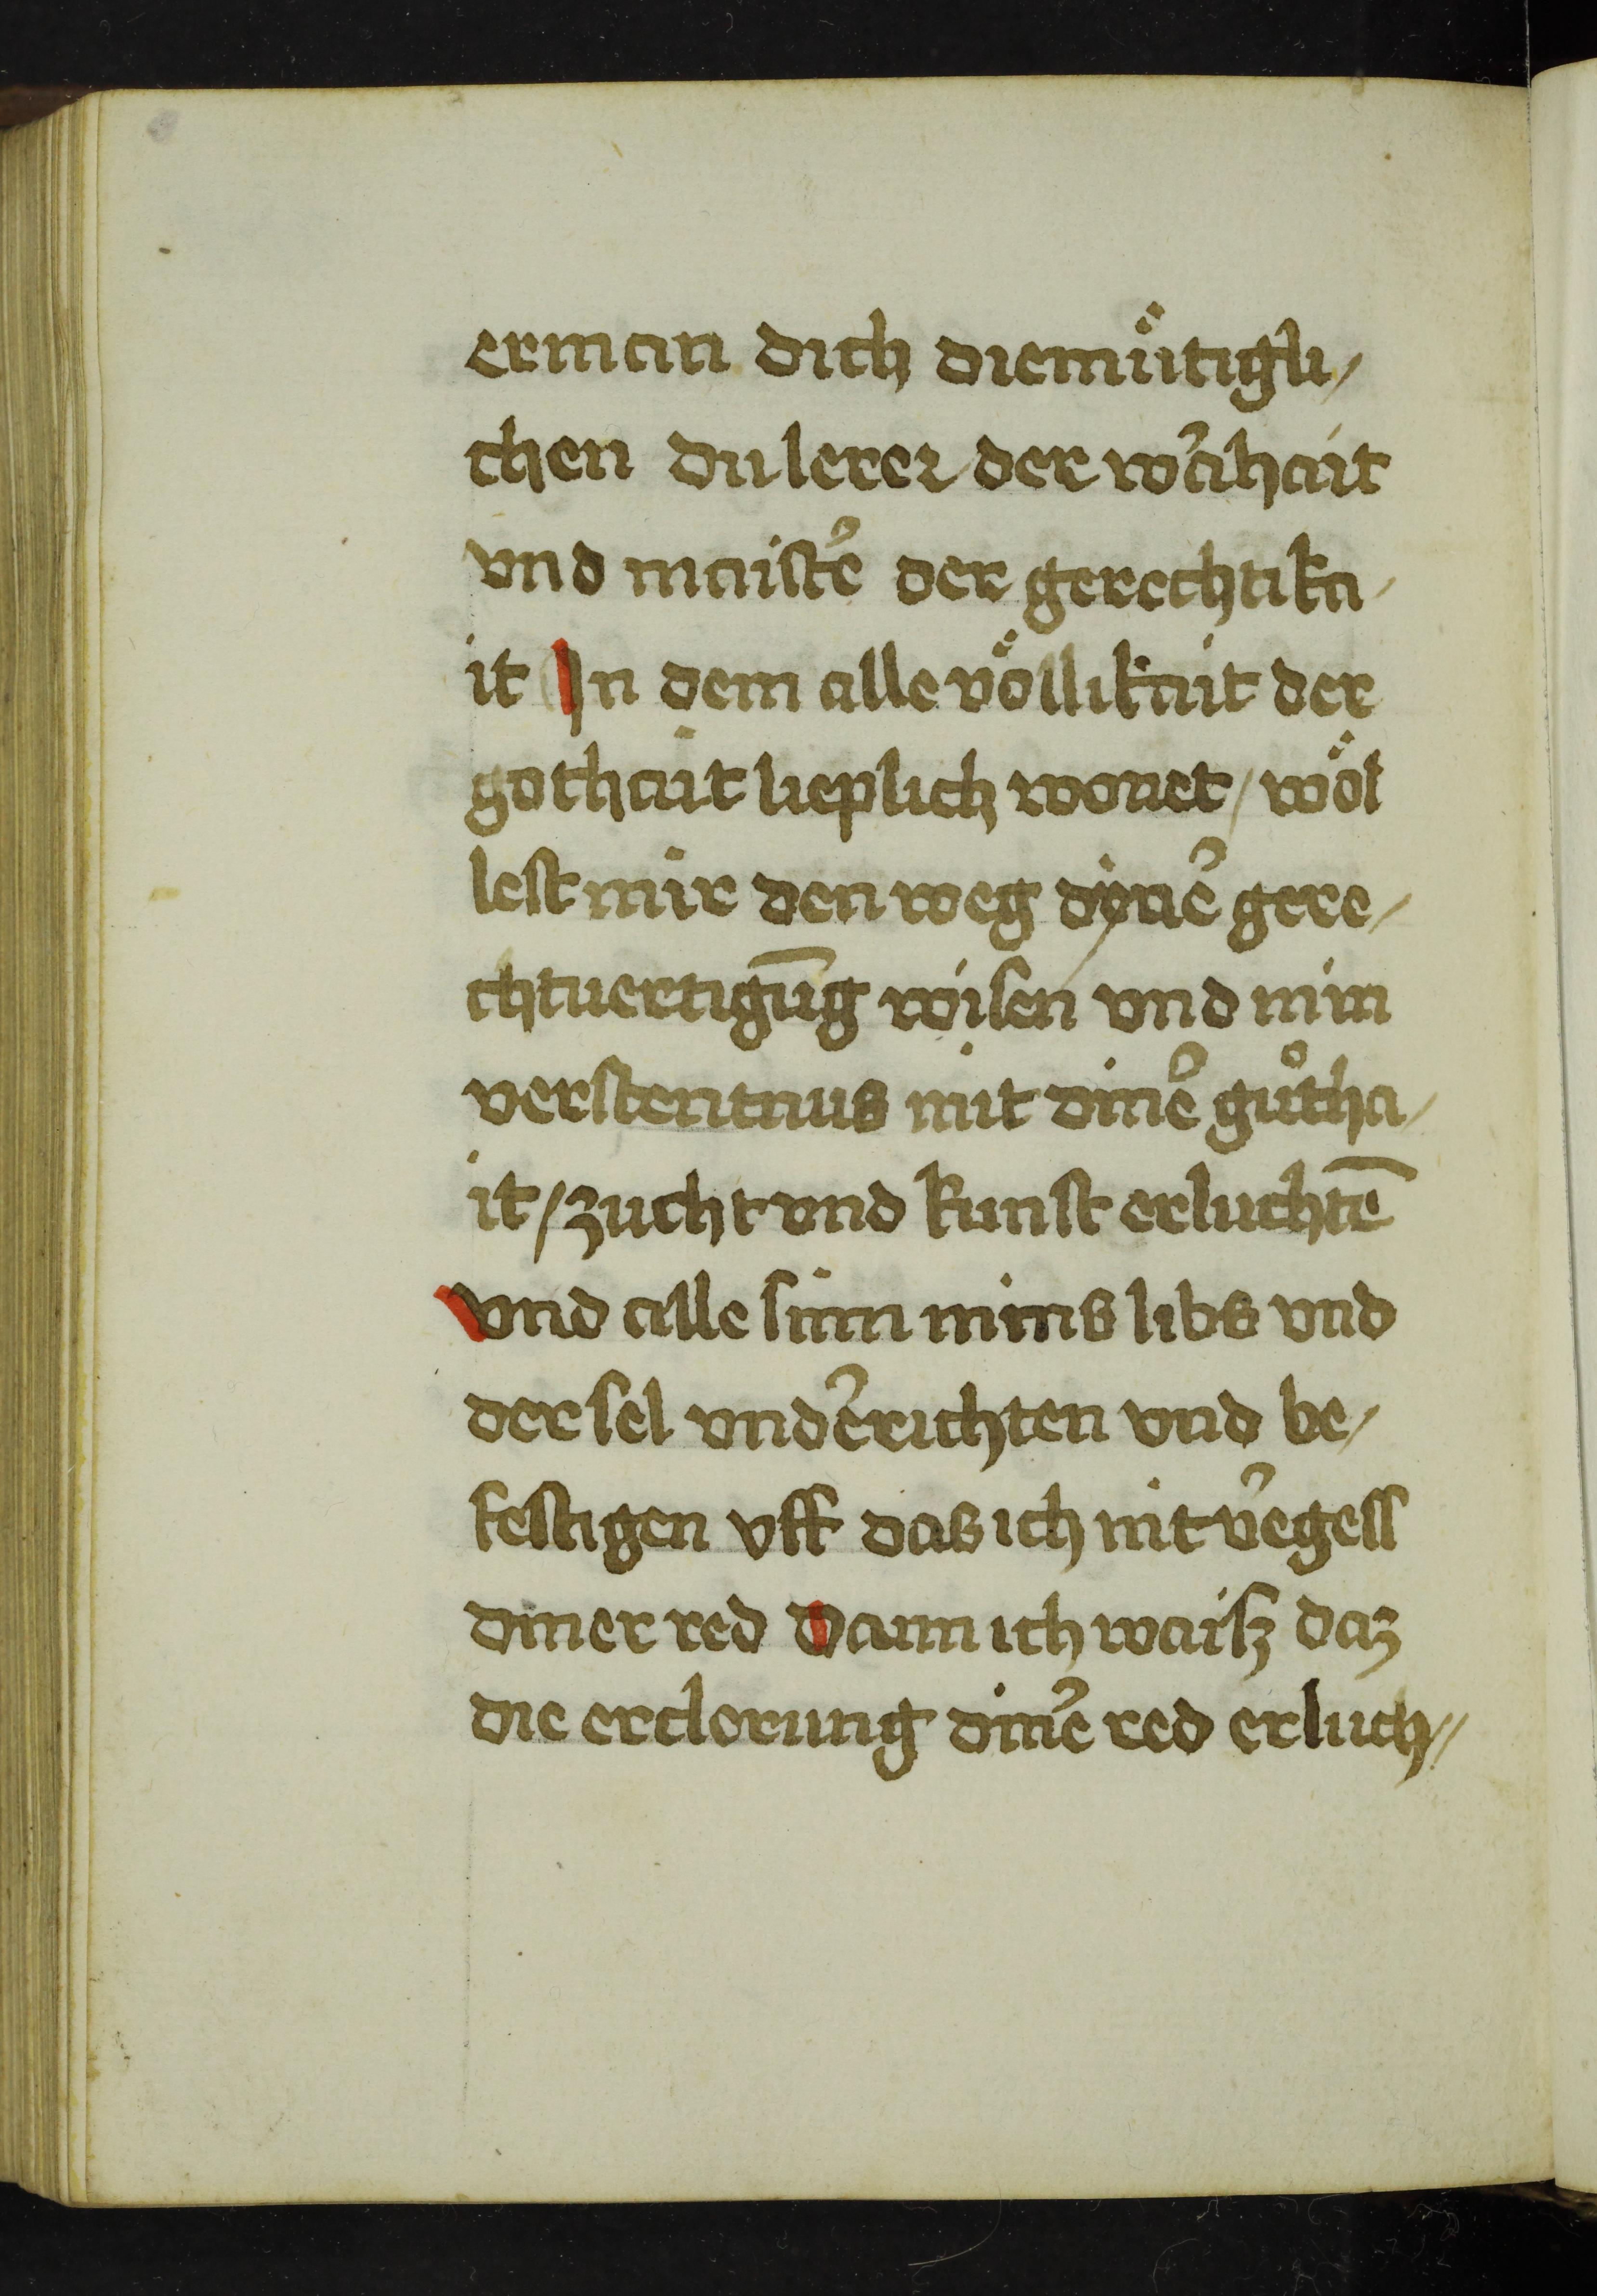 erman dich diemuͤtigli /
chen du lerer der wa͛hait
vnd maiste͛ der gerechtika /
it In dem alle voͤllikait der
gothait lieplich wonet / woͤl
lest mir den weg dyne͛ gere /
chtuertigūg wisen vnd min
verstentnus mit dine͛ guͦtha /
it / zucht vnd kunst erluchtē
vnd alle sinn mins libs vnd
der sel vnde͛richten vnd be /
festigen vff das ich nit v͛gess
diner red Dann ich waisz daz
die erclerung dine͛ red erluch //